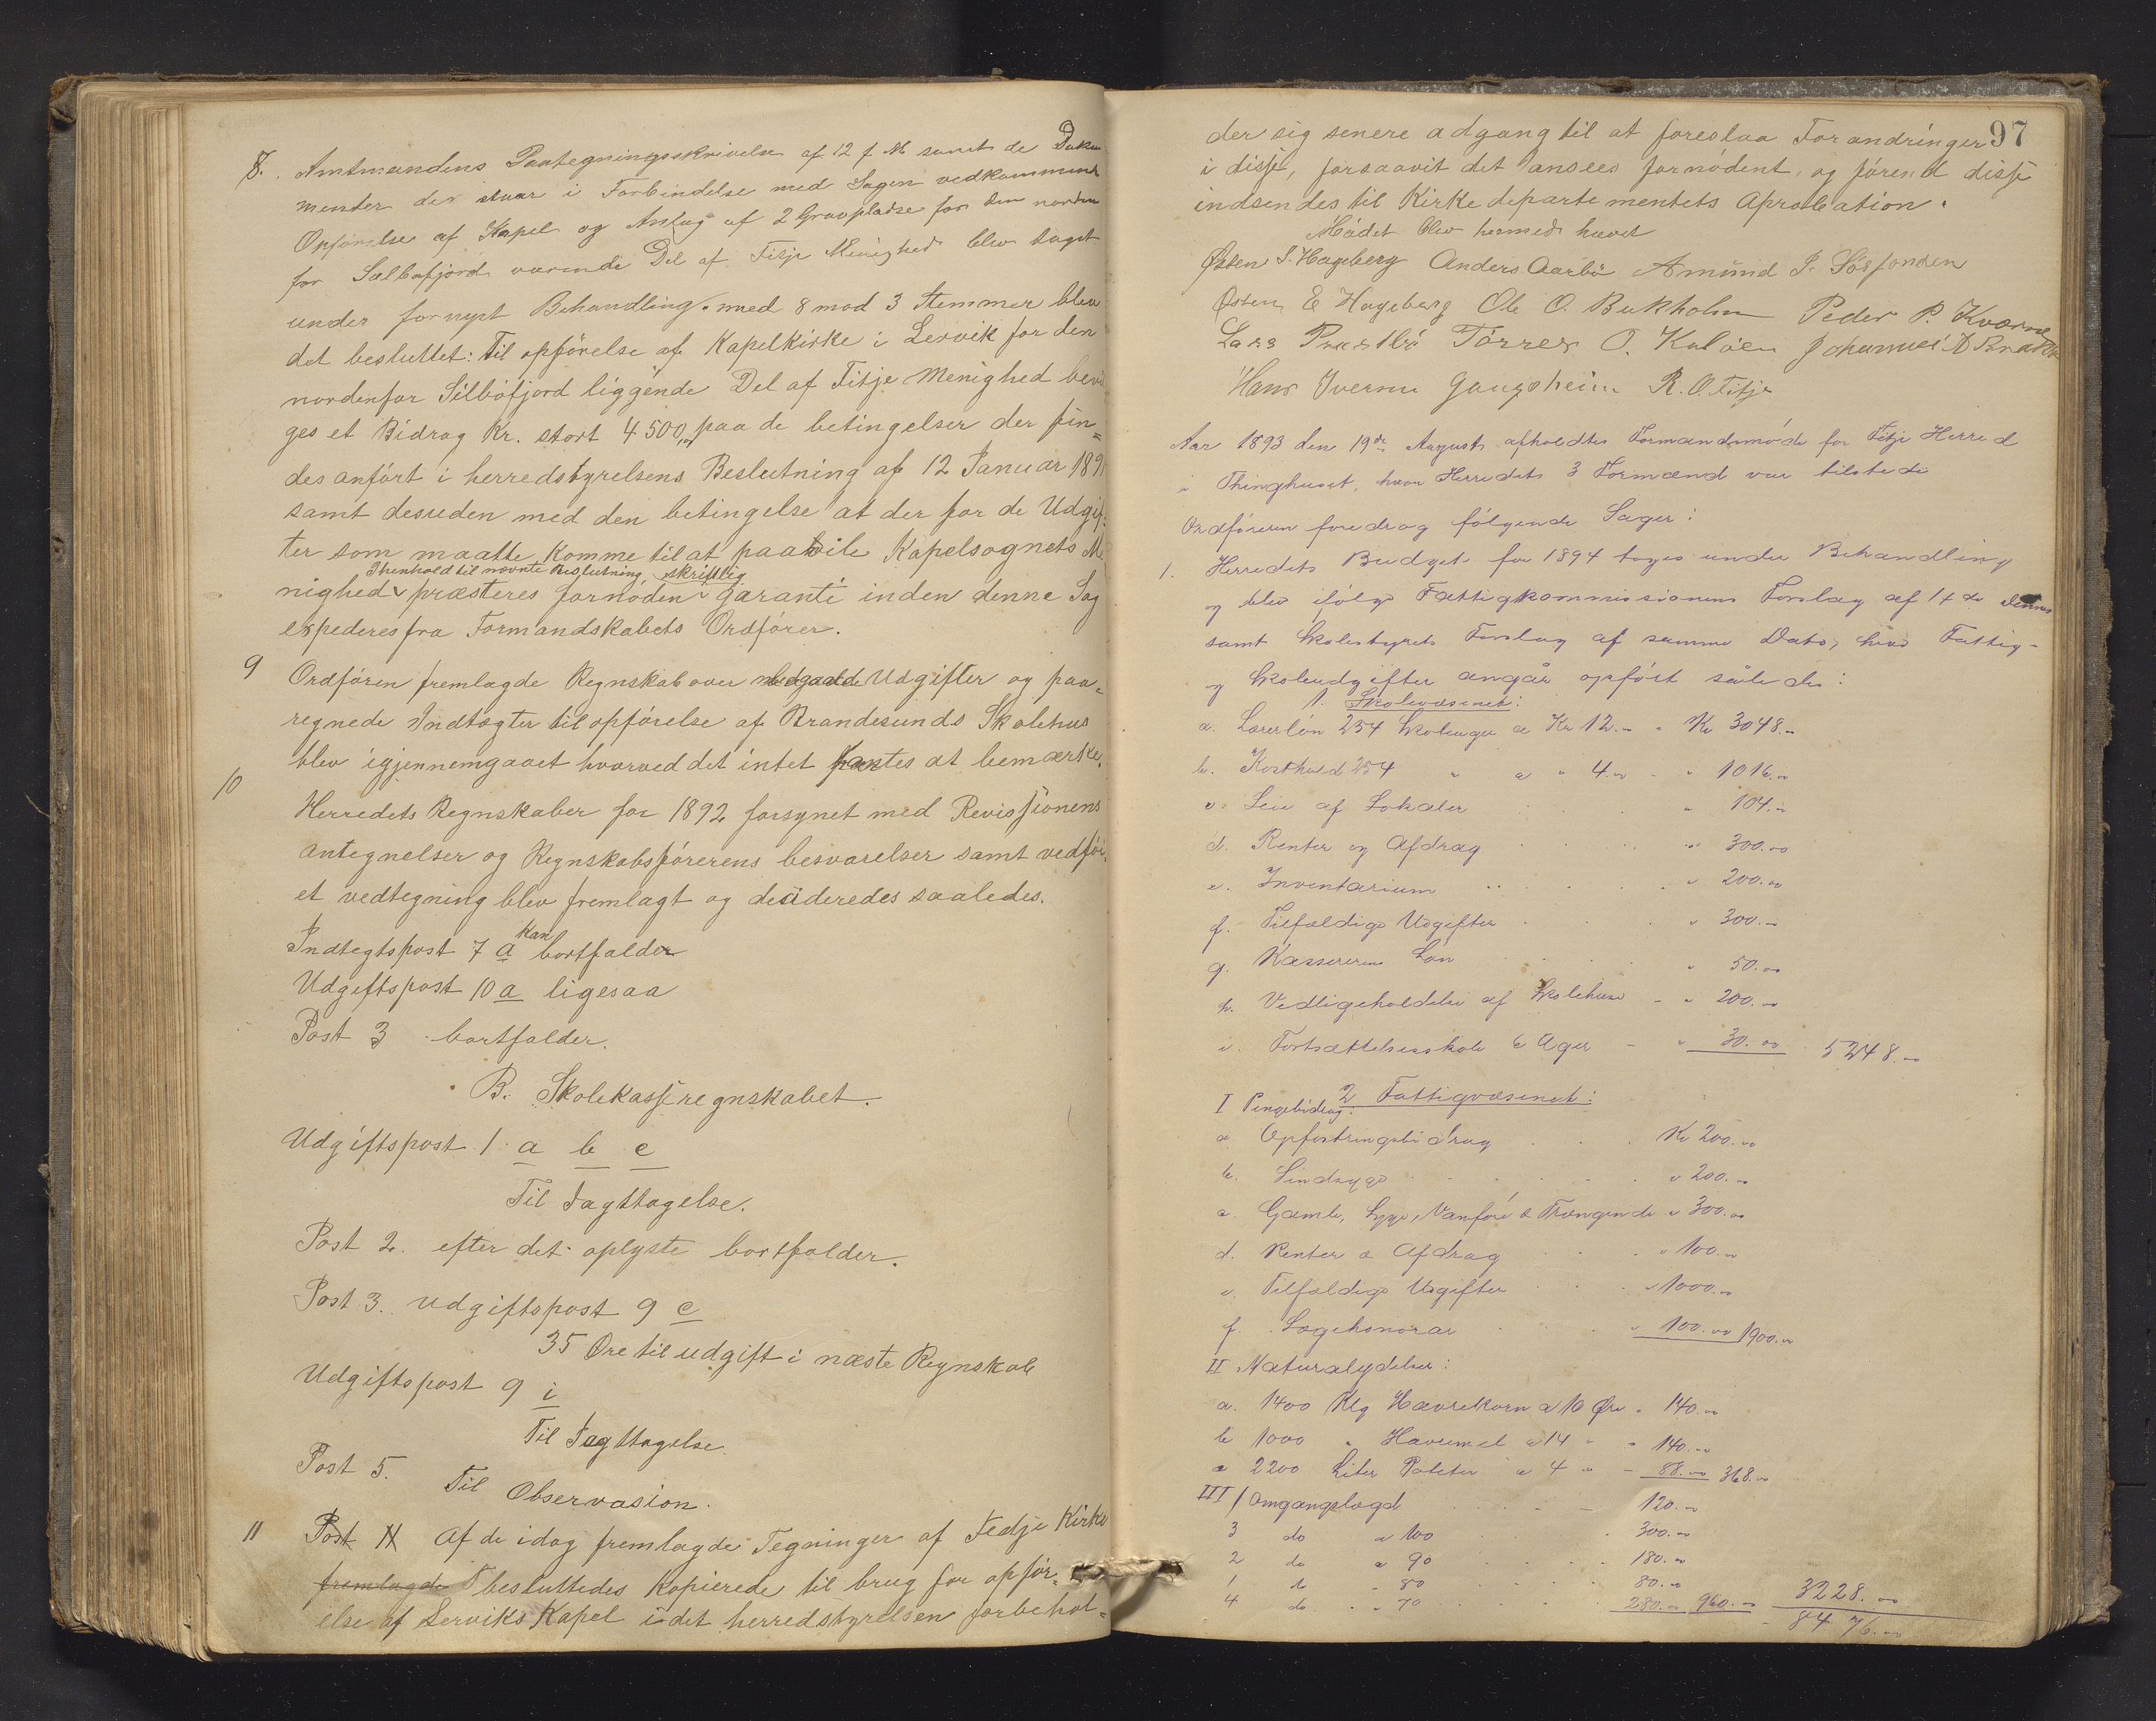 8. Amtmandens Paategningsskrivelse af 12 f. M. samt de Doku-
menter der staar i Forbindelse med Sagen vedkommende
Opførelse af Kapel og Anlæg af 2 Gravpladse for den norden
for Selbøfjord værende Del af Fitje Menighed blev taget
under fornyet Behandling. med 8 mod 3 Stemmer blev
det besluttet: Til opførelse af Kapelkirke i Lervik for den
nordenfor Selbøfjord liggende Del af Fitje Menighed bevil
ges et Bidrag Kr. stort 4500,00 paa de betingelser der fin=
des anført i herredstyrelsens Beslutning af 12 Januar 189
samt desuden med den betingelse at der for de Udgif=
ter som maatte komme til at paahvile Kapelsognets Me
Ihenhold til nævnte Beslutning, skriftlig
nighed præsteres fornøden garanti inden denne Sag
expederes fra Formandskabets Ordfører.
9 Ordføren fremlagde Regnskab over medgaaede Udgifter og paa=
regnede Indtægter til opførelse af Brandesunds Skolehus
blev igjennemgaaet hvorved det intet fantes at bemærke.
10
Herredets Regnskaber for 1892 forsynet med Revissionens
antegnelser og Regnskabsførerens besvarelser samt vedføi
et vedtegning blev fremlagt og desideredes saaledes.
Indtegtspost 7 a kan bortfalder
Udgiftspost 10 a ligesaa
Post 3 bortfalder.
B. Skolekasseregnskabet.
Udgiftspost 1. a b c
Til Iagttagelse.
Post 2. efter det oplyste bortfalder.
Post 3. udgiftspost 9 c
35 Øre til udgift i næste Regnskab
Udgiftspost 9 i
Til Iagttagelse.
Post 5.
Til Observasion.
11 Post 11 Af de idag fremlagde Tegninger af Fedje Kirke
fremlagde besluttedes kopierede til brug for opfør=
else af Lerviks Kapel idet herredstyrelsen forbehol=
97
der sig senere adgang til at foreslaa Forandringer
i disse, forsaavit det ansees fornødent, og førend disse
indsendes til Kirkedepartementets Aprobation.
Mødet blev hermed hævet
Østen S. Hageberg Anders Aarbø Amund P. Sørfonden
Østen E Hageberg Ole O. Bukholm Peder P. Kværne
Lars Præstbø Tørres O. Kaløen Johannes
Hans Iversen Gangsheim R. O. Fitje
Aar 1893 den 19de August afholdtes Formandsmøde for Fitje Herred
i Thinghuset, hvor Herredets 3 Formænd var tilstede
Ordføreren foredrog følgende Sager:
1. Herredets Budget for 1894 toges under Behandling
og blev ifølge Fattigkommissionens Forslag af 14 ds dennes
samt Skolestyrets Forslag af samme Dato, hvad Fattig-
og Skoleudgifter angår opført således:
1. Skolevæsenet:
a. Lærerløn 254 Skoleuger a Kr 12.00 Kr 3048.00
b. Kosthold 254 " a " 4.00 " 1016.00
c. Leie af Lokaler " 104.00
d. Renter og Afdrag " 300.00
e. Inventarium " 200.00
f. Tilfældige Udgifter " 300.00
g. Kassererens Løn " 50.00
h. Vedligeholdelse af Skolehuse " 200.00
i. Fortsættelsesskole 6 Uger " 30.00 5248.00
2 Fattigvæsenet:
I Pengebidrag:
a Opfostringsbidrag Kr 200.00
b. Sindsyge " 200.00
c. Gamle, Syge, Vanføre & Trængende " 300.00
d. Renter & Afdrag " 100.00
e. Tilfældige Udgifter " 1000.00
f. Lægehonorar " 100.00 1900.00
II Naturalydelser:
a. 1400 Klg Havrekorn a 10 Øre " 140.00
b 1000 " Havremel a 14 " " 140.00
c 2200 Liter Poteter a 4 " " 88.00 368.00
III 1 Omgangslægd 120.00
3 do a 100 300.00
2 do a 90 180.00
1 do " 80 80.00
4 do " 70 280.00 960.00 3228.00
8476.00